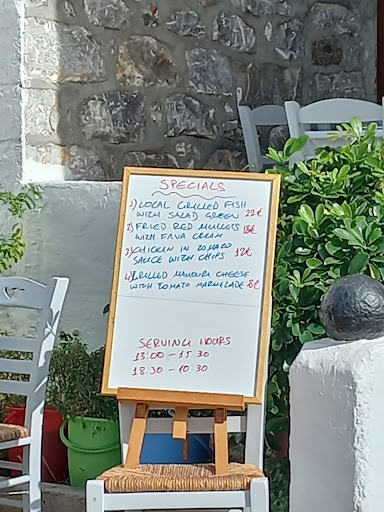 SPECIALS
1) LOCAL GRILLED FISH
WITH SALAD GREEN 22€
2) FRIED RED MULLETS
WITH FAVA CREAM 18€
3) CHICKEN IN TOMATO
SAUCE WITH CHIPS 12€
4) GRILLED MANOURI CHEESE
WITH TOMATO MARMELADE 8€
SERVING HOURS
13:00 - 15:30
18:30 - 10:30